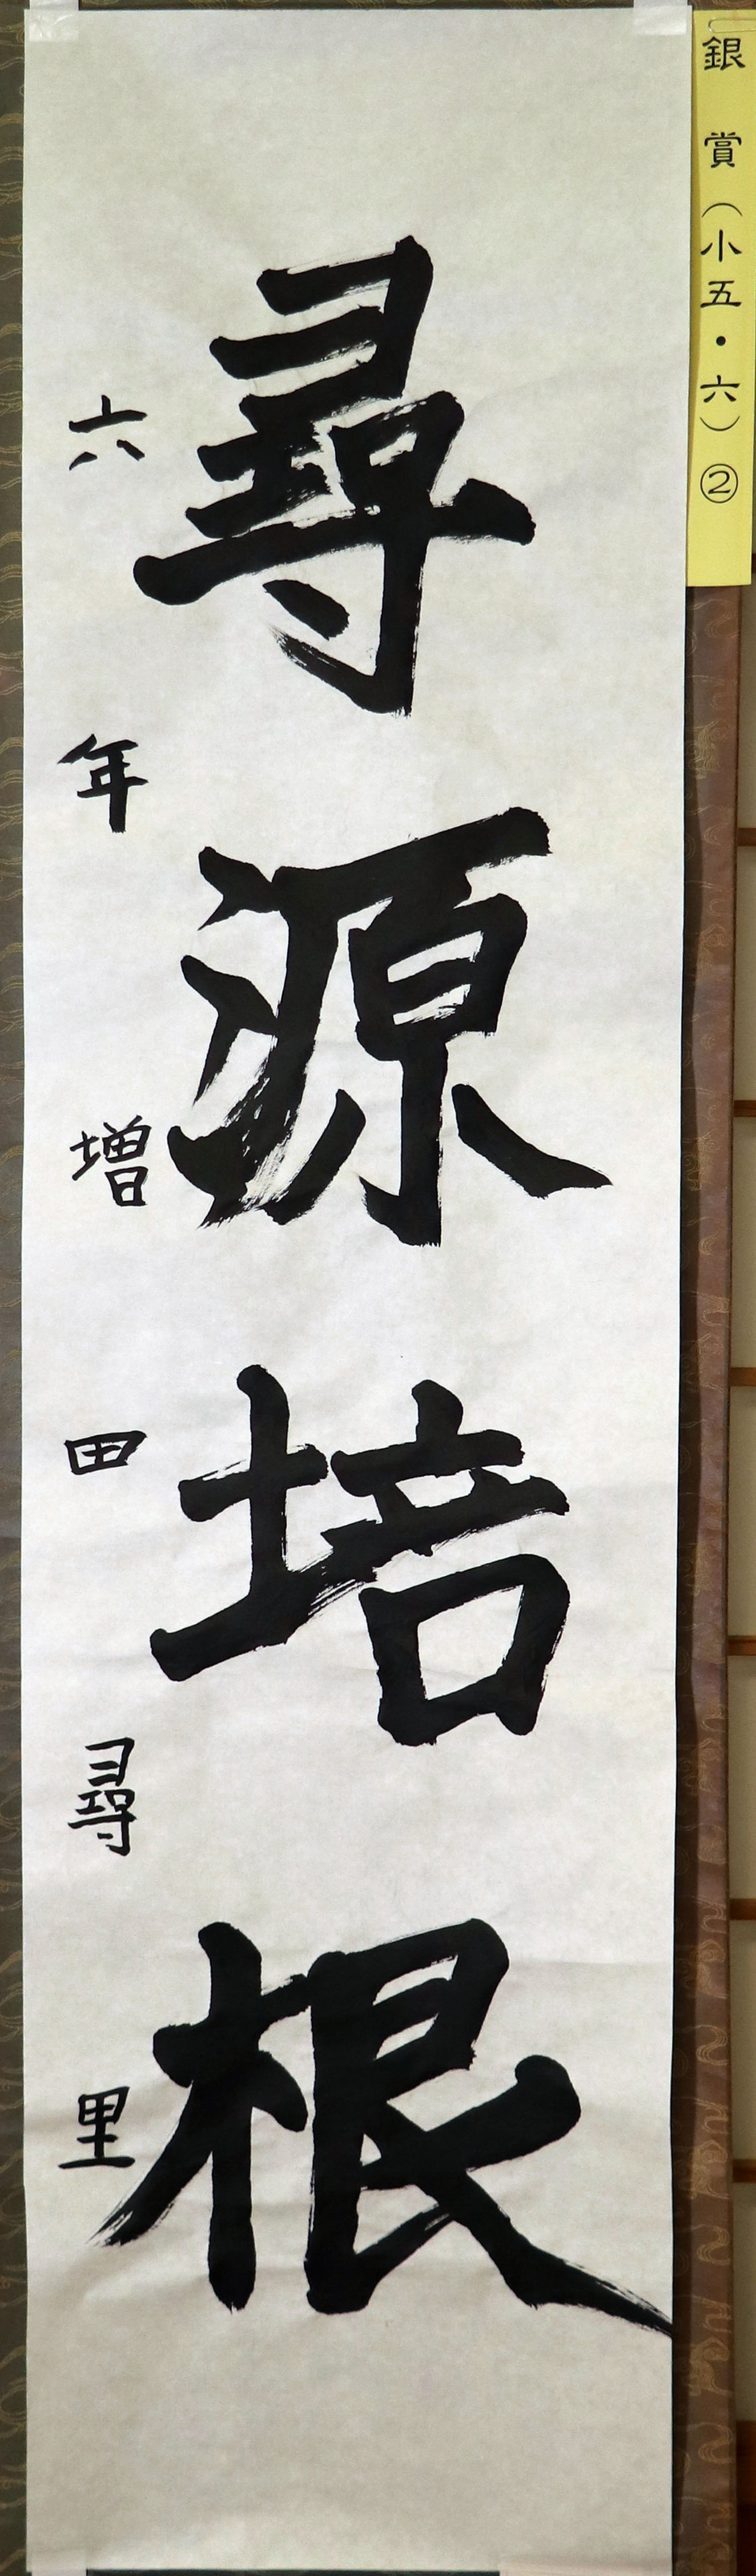 銀賞（小五・六）②
尋源培根
六年増田尋里